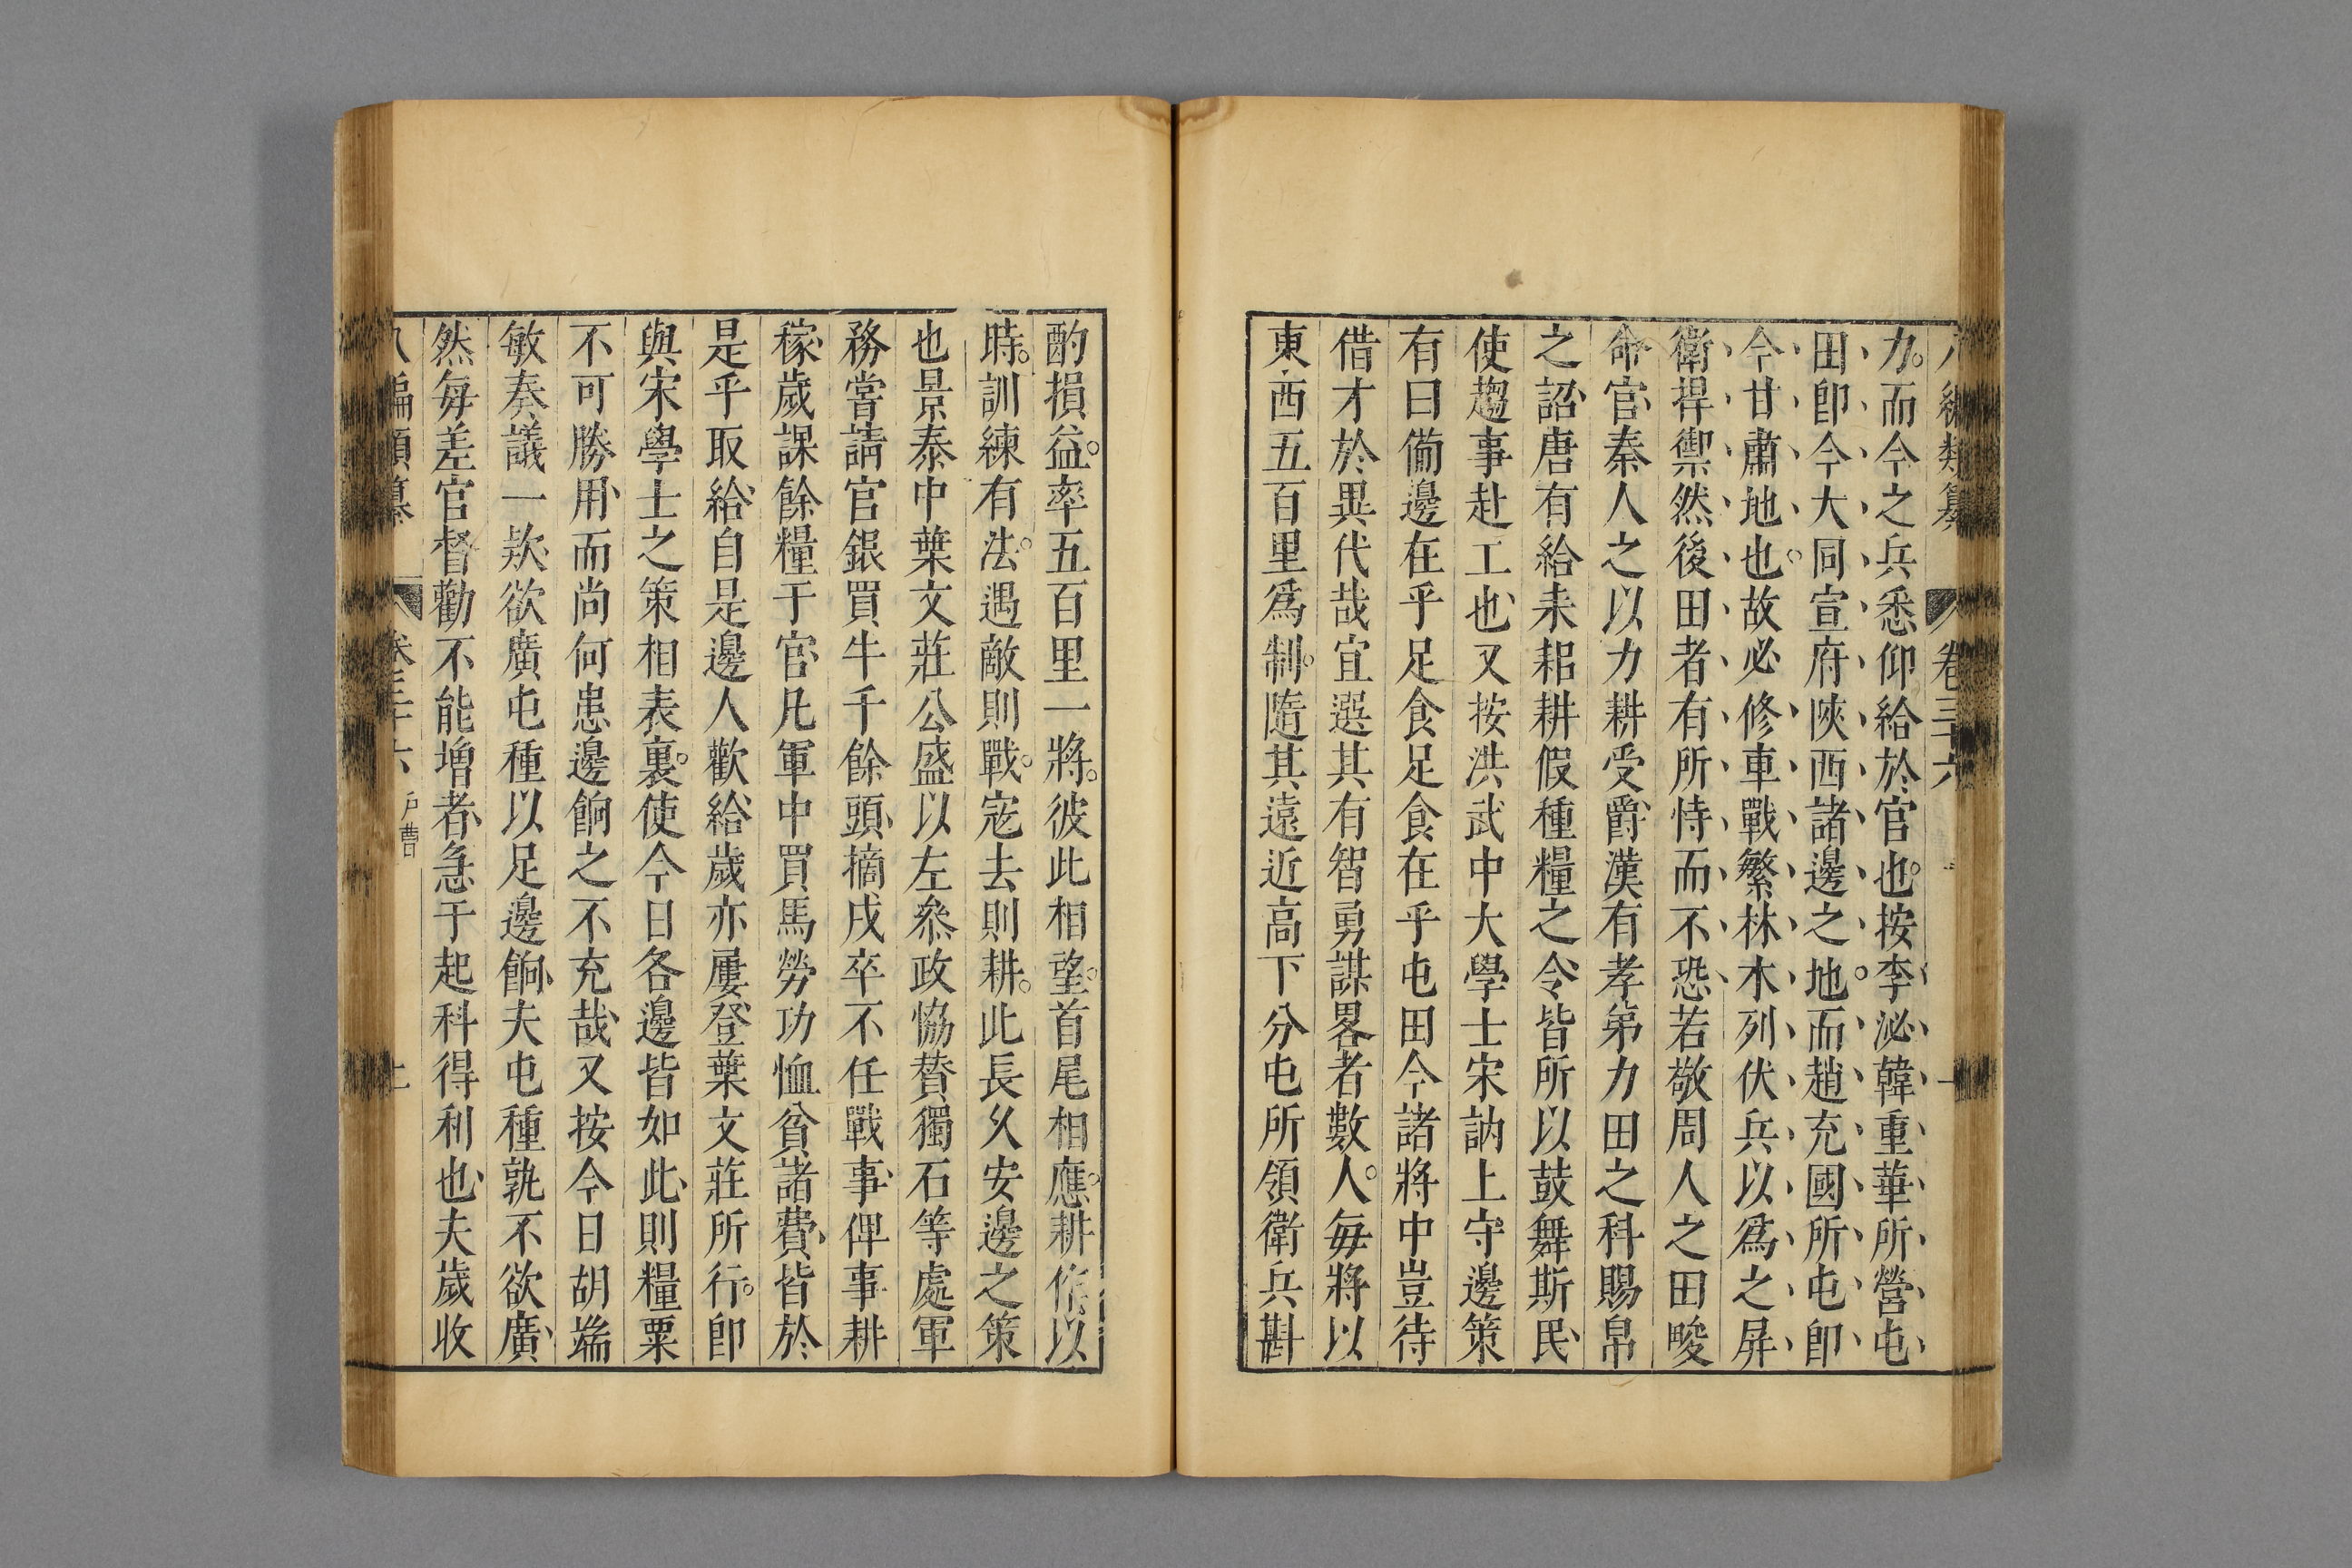 八編類纂 卷三十六
力而今之兵悉仰給於官也按李泌韓重華所營屯
田卽今大同宣府陜西諸邊之地而趙充國所屯卽
今甘肅地也故必修車戰繁林木列伏兵以爲之屏
衛捍禦然後田者有所恃而不恐若敬周人之田畯
命官秦人之以力耕受爵漢有孝弟力田之科賜帛
之詔唐有給耒耜耕假種糧之令皆所以鼓舞斯民
使趨事赴工也又按洪武中大學士宋訥上守邊策
有曰備邊在乎足食足食在乎屯田今諸將中豈待
借才於異代哉宜選其有智勇謀畧者數人每將以
東西五百里爲制隨其遠近高下分屯所領衛兵斟
酌損益率五百里一將彼此相望首尾相應耕作以
時訓練有法遇敵則戰宼去則耕此長久安邊之策
也景泰中葉文莊公盛以左叅政恊賛獨石等處軍
務嘗請官銀買牛千餘頭摘戍卒不任戰事俾事耕
稼歲課餘糧于官凡軍中買馬勞功恤貧諸費皆於
是乎取給自是邊人歡給歲亦屢登葉文莊所行卽
與宋學士之策相表裏使今日各邊皆如此則糧粟
不可勝用而尚何患邊餉之不充哉又按今日胡端
敏奏議一欵欲廣屯種以足邊餉夫屯種孰不欲廣
然每差官督勸不能增者急于起科得利也夫歲收
八編類纂 卷三十六 户曹